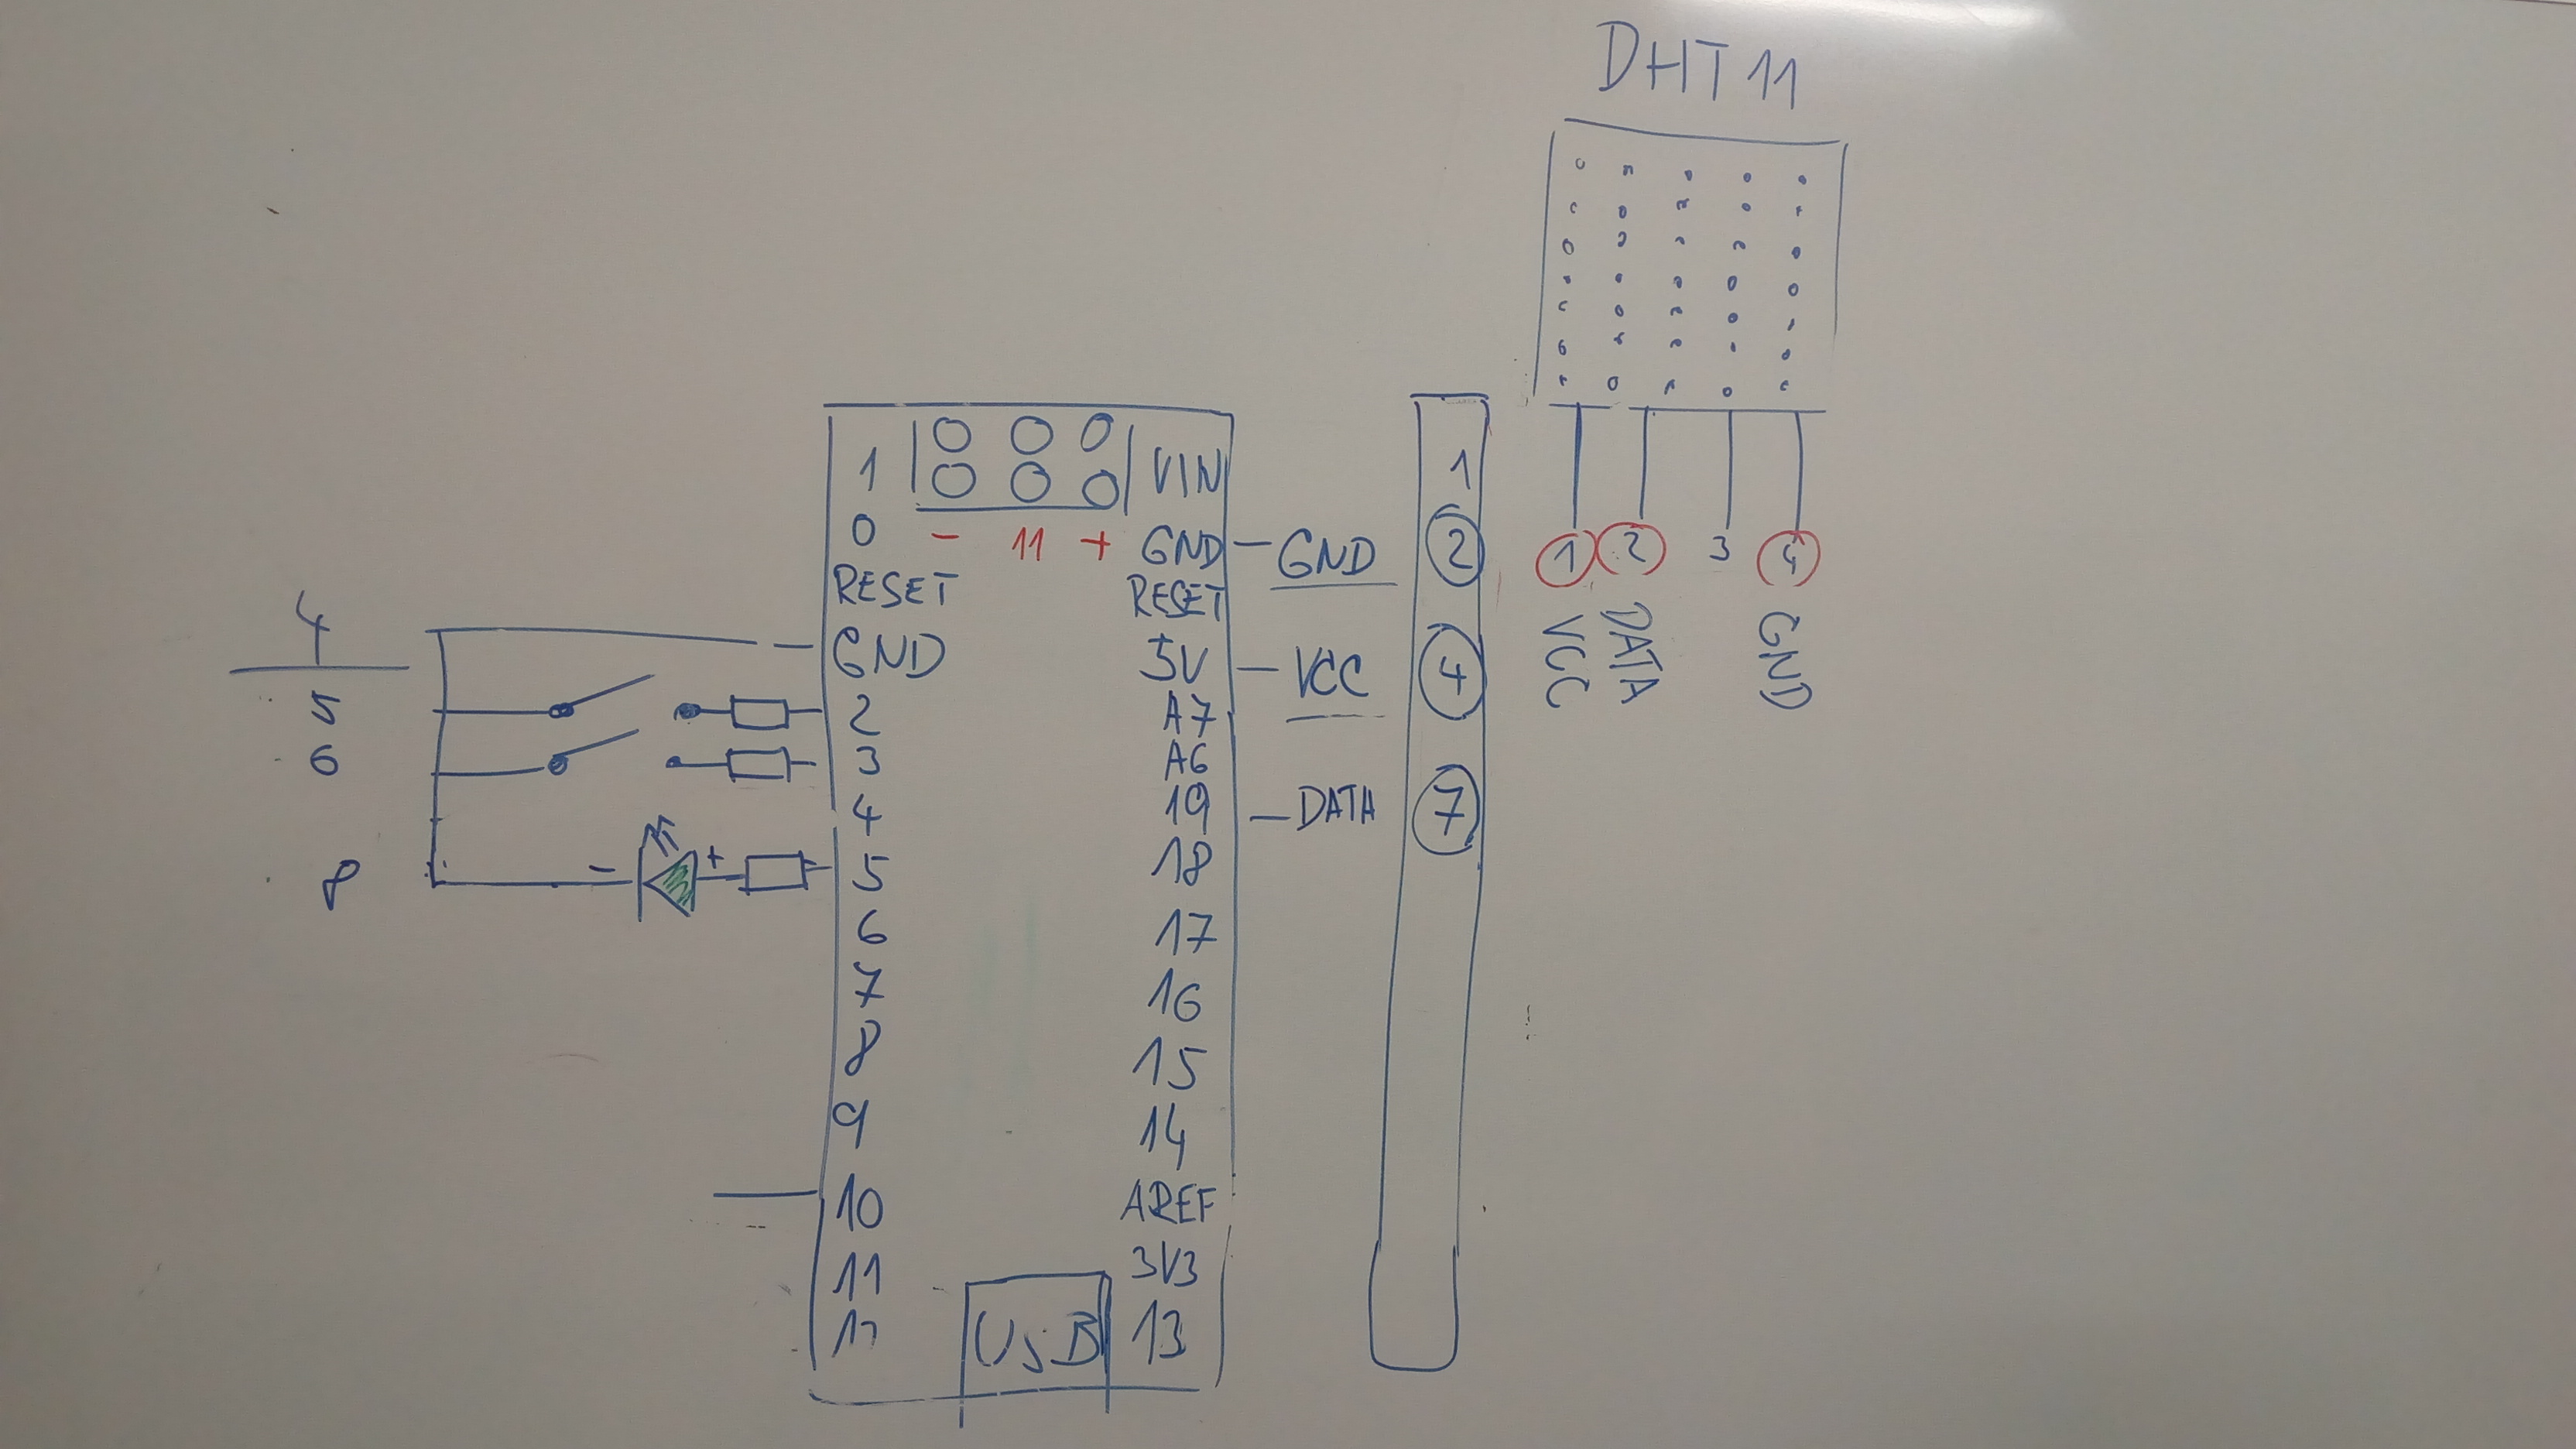 DHT 11
1 VIN 1
0 - 11 + GND - GND 2 1 2 3 4
RESET RESET
4 GND 5V - VCC 4 VCC DATA GND
5 2 A7
6 3 A6
4 19 - DATA 7
8 - + 5 18
6 17
7 16
8 15
9 14
10 AREF
11 3V3
USB 13